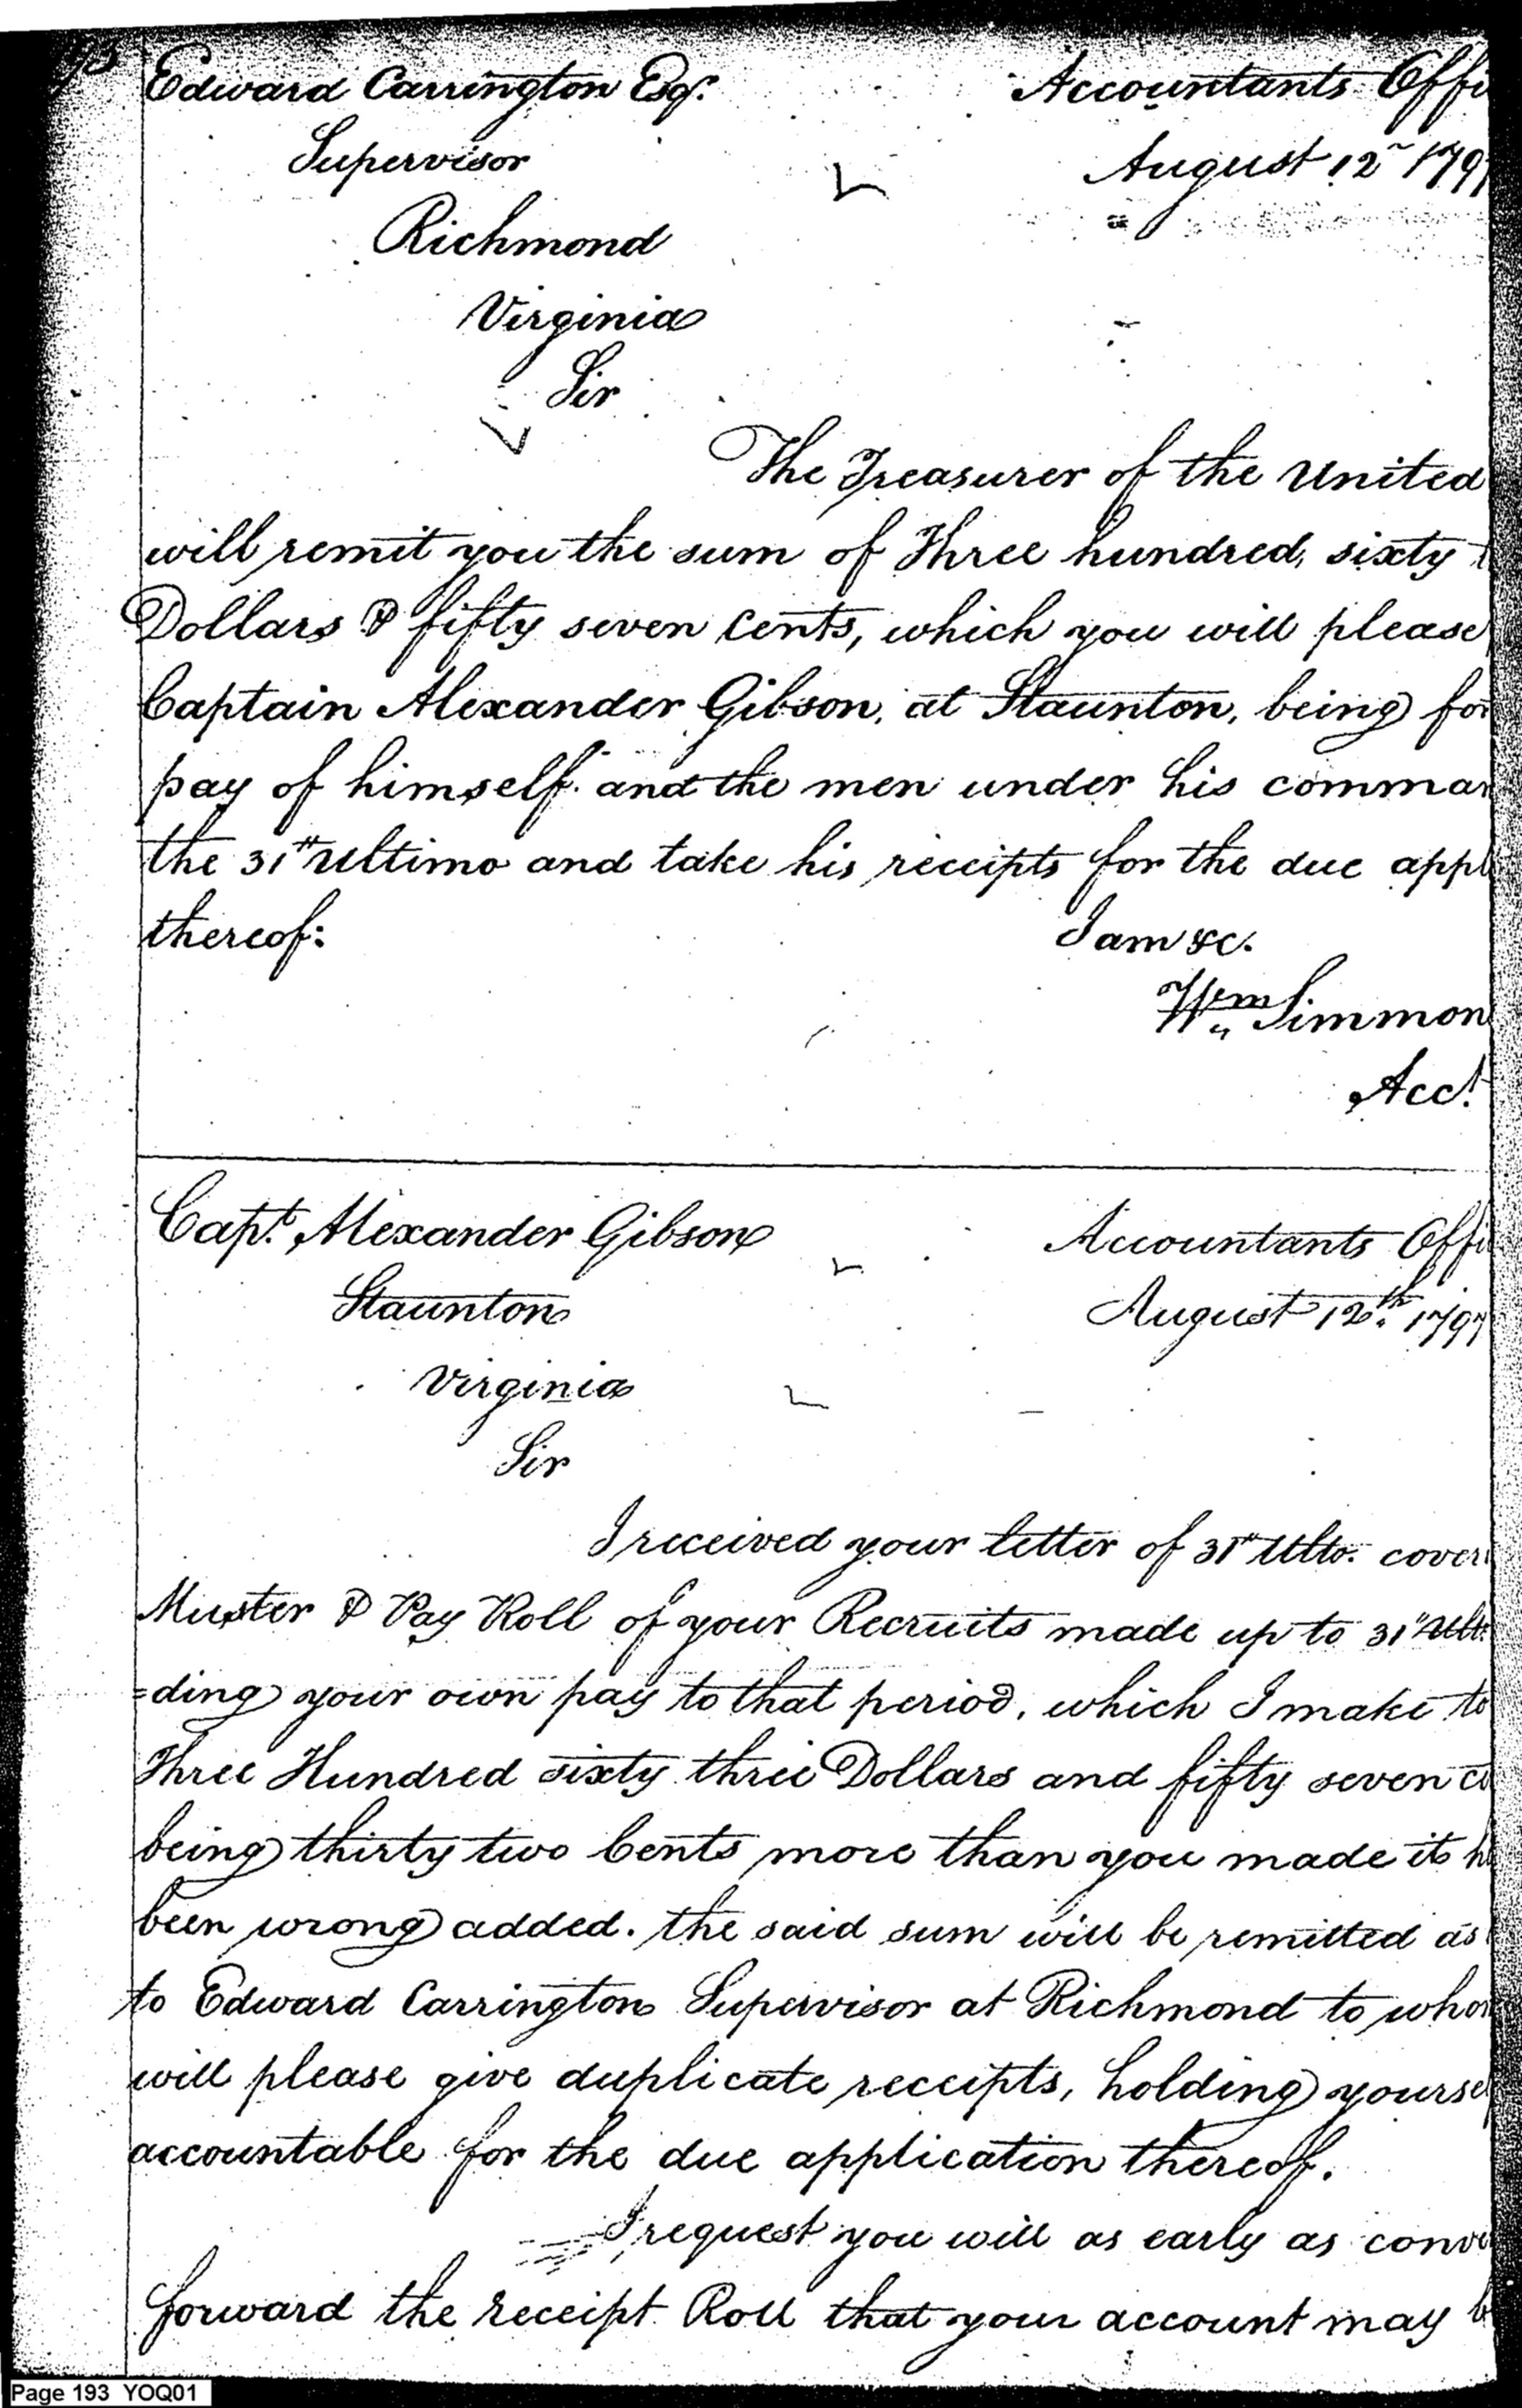 Edward Carrington Esqr. Accountants Offi
Supervisor August 12 179
Richmond
Virginia
Sir
The Treasurer of the United
will remit you the sum of Three hundred, sixty
Dollars & fifty seven Cents, which you will please
Captain Alexander Gibson, at Staunton, being for
pay of himself and the men under his comman
the 31st Ultimo and take his receipts for the due appl
thereof: I am &c.
Wm Simmon
Acct.
Capt. Alexander Gibson Accountants Offi
Staunton August 12th 1797
Virginia
Sir
I received your letter of 31st Ulto. cover
Muster & Pay Roll of your Recruits made up to 31st Ulto.
=ding your own pay to that period, which I make to
Three Hundred sixty three Dollars and fifty seven ce
being thirty two Cents more than you made it h
been wrong added. the said sum will be remitted as
to Edward Carrington Supervisor at Richmond to whom
will please give duplicate receipts, holding yoursel
accountable for the due application thereof.
I request you will as early as conve
forward the receipt Roll that your account may b
Page 193 YOQ01